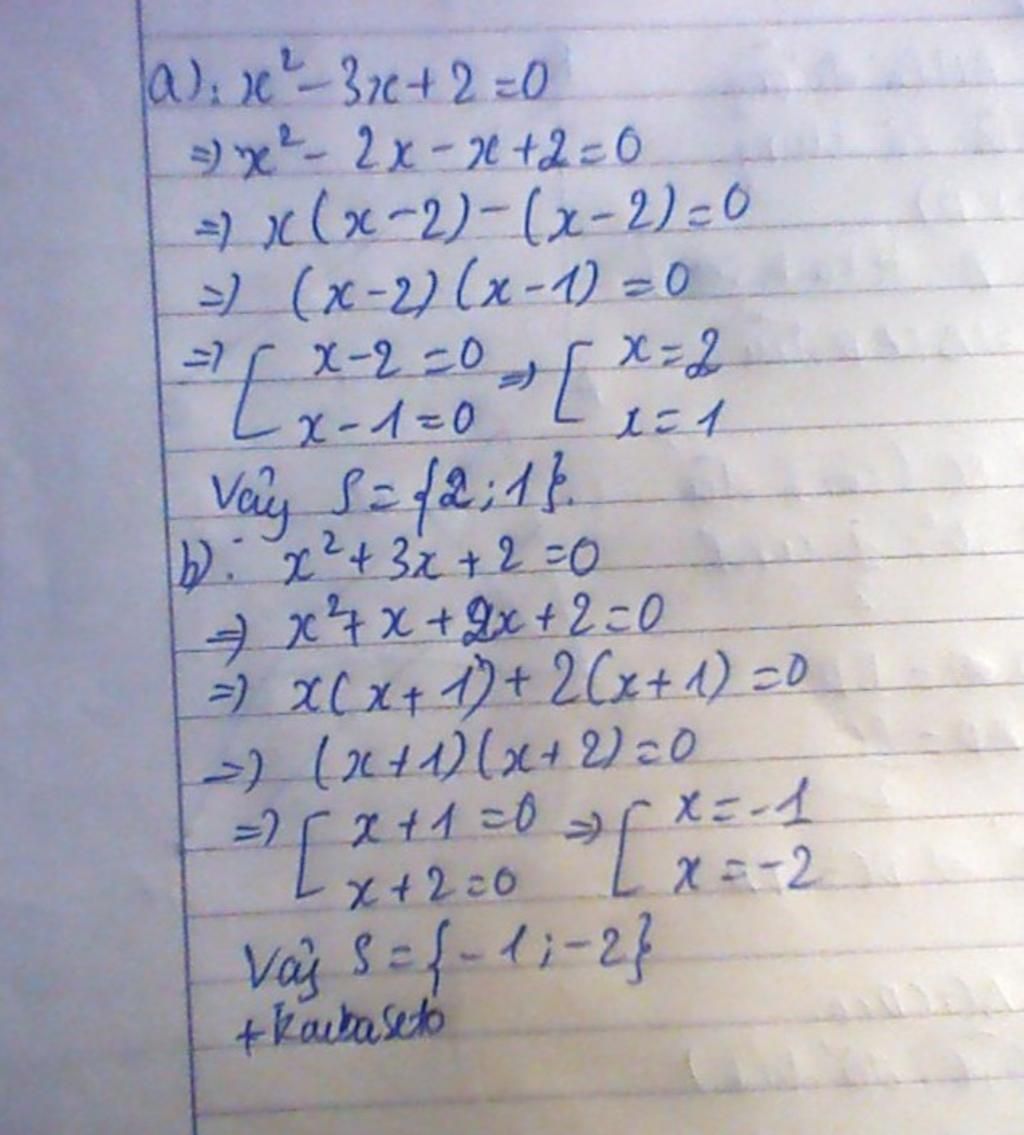 a): x² - 3x + 2 = 0
=) x² - 2x - x + 2 = 0
=) x(x - 2) - (x - 2) = 0
=) (x - 2)(x - 1) = 0
=) [ x - 2 = 0 => [ x = 2
x - 1 = 0 x = 1
Vậy S = {2; 1}.
b): x² + 3x + 2 = 0
=) x² + x + 2x + 2 = 0
=) x(x + 1) + 2(x + 1) = 0
=) (x + 1)(x + 2) = 0
=) [ x + 1 = 0 => [ x = -1
x + 2 = 0 x = -2
Vậy S = {-1; -2}
+ Kaibaseto